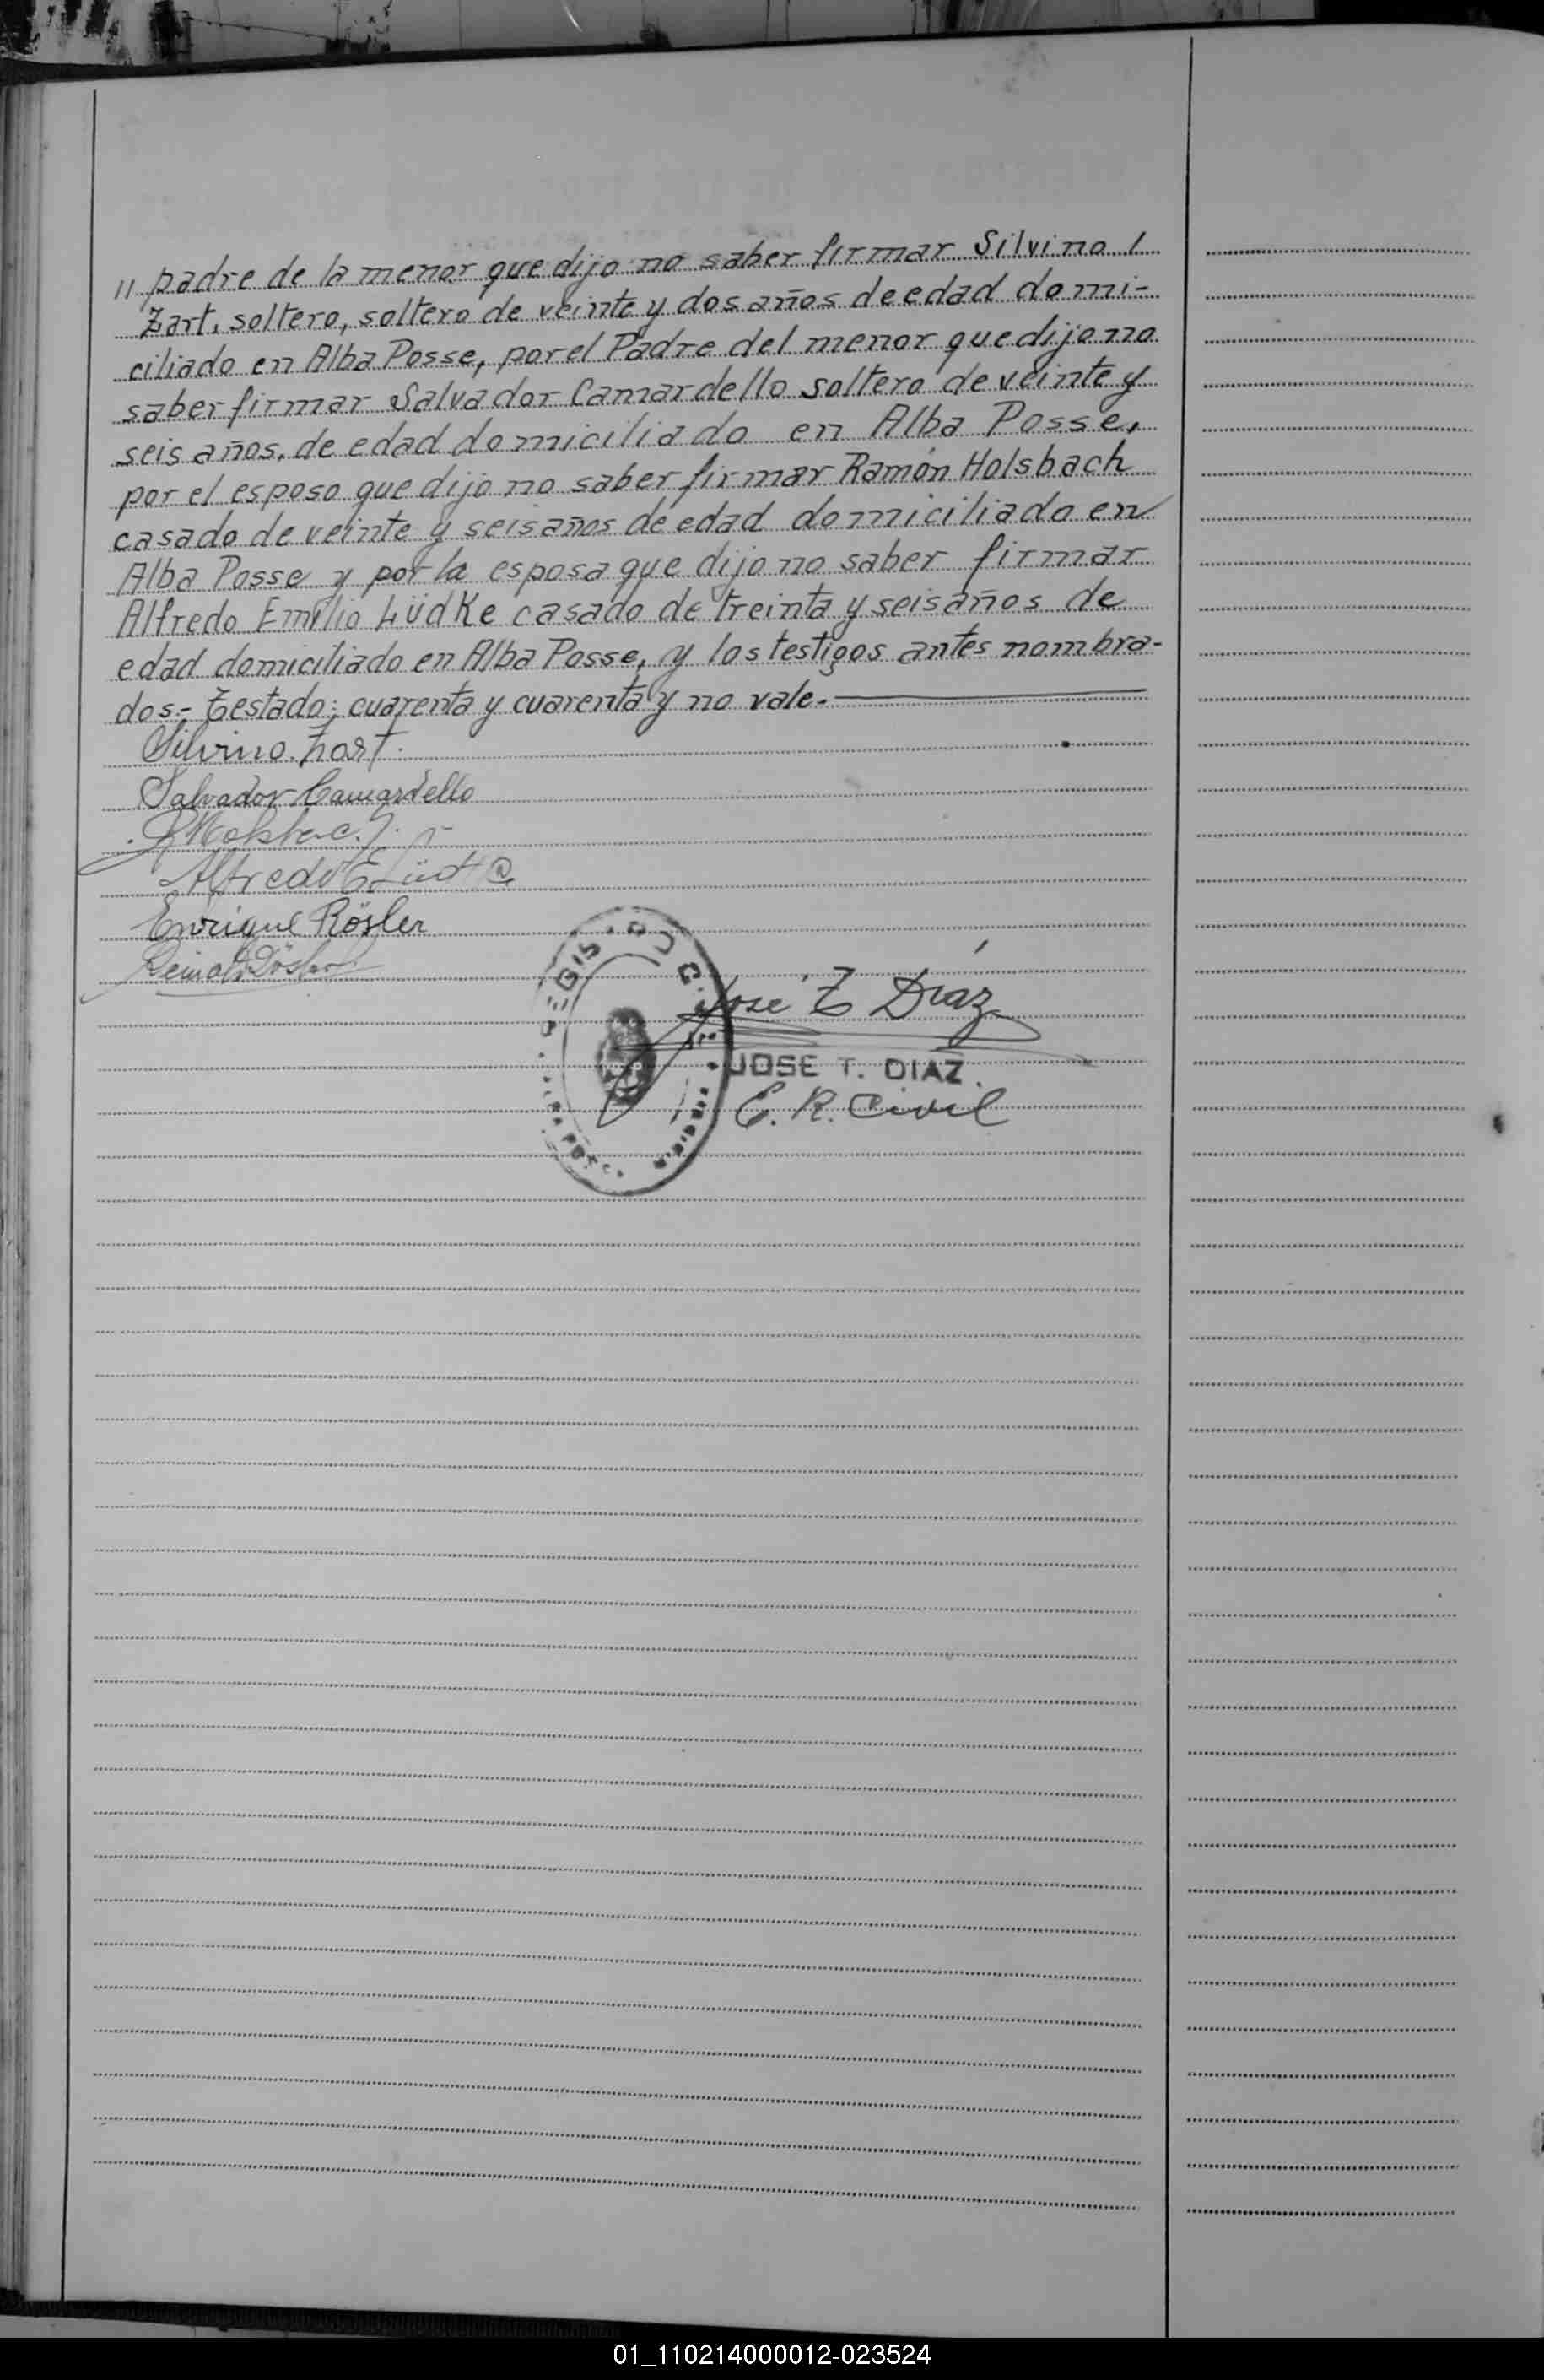 " padre de la menor que dijo no saber firmar Silvino /
Zart, soltero, soltero de veinte y dos años de edad domi-
ciliado en Alba Posse, por el Padre del menor que dijo no
saber firmar Salvador Camardello soltero de veinte y
seis años, de edad domiciliado en Alba Posse,
por el esposo que dijo no saber firmar Ramón Holsbach
casado de veinte y seis años de edad domiciliado en
Alba Posse y por la esposa que dijo no saber firmar
Alfredo Emilio Lüdke casado de treinta y seis años de
edad domiciliado en Alba Posse, y los testigos antes nombra-
dos.- Testado: cuarenta y cuarenta y no vale.-
Silvino Zart.
Salvador Camardello
Alfredo E
Enrique Rösler
José T Díaz
JOSE T. DIAZ.
E. R. Civil
01_110214000012-023524